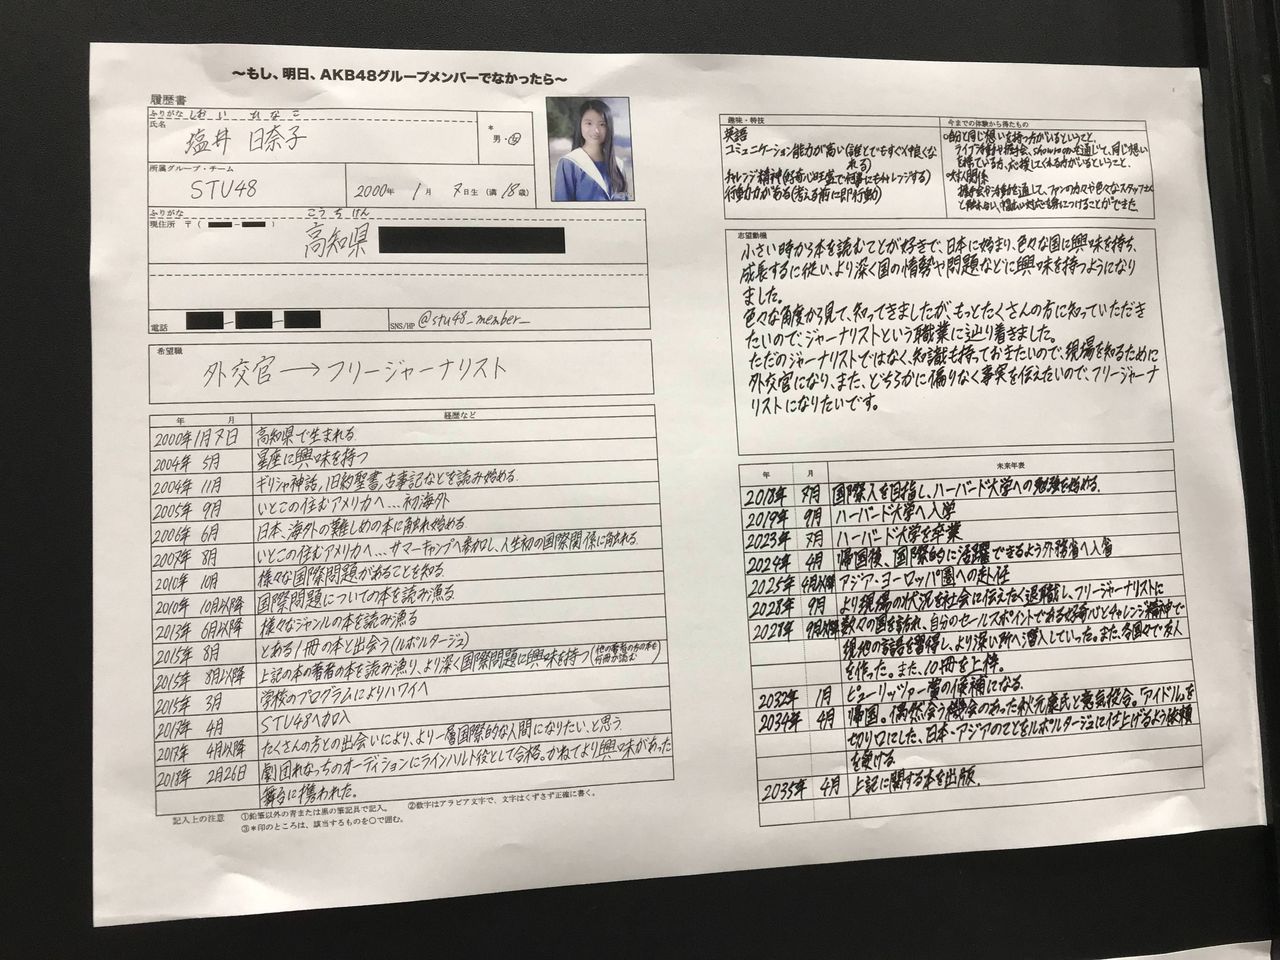 〜もし、明日、AKB48グループメンバーでなかったら〜
履歴書
ふりがな しおい ひなこ
氏名 塩井 日奈子
*
男・女
所属グループ・チーム
STU48
2000年 1月 7日生 (満 18歳)
ふりがな こうちけん
現住所 〒( - )
高知県
電話
SNS/HP @stu48_member_
希望職
外交官→フリージャーナリスト
年 月 経歴など
2000年1月7日 高知県で生まれる
2004年 5月 星座に興味を持つ
2004年 11月 ギリシャ神話、旧約聖書、古事記などを読み始める
2005年 9月 いとこの住むアメリカへ…初海外
2006年 6月 日本、海外の難しめの本に触れ始める
2007年 8月 いとこの住むアメリカへ…サマーキャンプへ参加し、人生初の国際関係に触れる
2010年 10月 様々な国際問題があることを知る
2010年 10月以降 国際問題についての本を読み漁る
2013年 6月以降 様々なジャンルの本を読み漁る
2015年 8月 とある1冊の本と出会う(ルポルタージュ)
2015年 8月以降 上記の本の著者の本を読み漁り、より深く国際問題に興味を持つ(他の著者の方の本も何冊か読む)
2015年 3月 学校のプログラムによりハワイへ
2017年 4月 STU48へ加入
2017年 4月以降 たくさんの方との出会いにより、より一層国際的な人間になりたい、と思う
2018年 2月26日 劇団れなっちのオーディションにラインハルト役として合格。かねてより興味があった
舞台に携われた。
記入上の注意 ①鉛筆以外の青または黒の筆記具で記入。 ②数字はアラビア文字で、文字はくずさず正確に書く。
③*印のところは、該当するものを〇で囲む。
趣味・特技
英語
コミュニケーション能力が高い(誰とでもすぐに仲良くなれる)
チャレンジ精神(好奇心旺盛で何事にもチャレンジする)
行動力がある(考える前に即行動)
今までの体験から得たもの
○自分と同じ想いを持つ方がいるということ
ライブ活動や握手会、showroomを通じて、同じ想い
を持っている方、応援してくれる方がいるということ、
○対人関係
握手会や活動を通して、ファンの方々や色々なスタッフさん
と触れ合い、幅広い対応を身につけることができた
志望動機
小さい時から本を読むことが好きで、日本に始まり、色々な国に興味を持ち、
成長するに従い、より深く国の情勢や問題などに興味を持つようになり
ました。
色々な角度から見て、知ってきましたが、もっとたくさんの方に知っていただき
たいので、ジャーナリストという職業に辿り着きました。
ただのジャーナリストではなく、知識も持っておきたいので、現場を知るために
外交官になり、また、どちらかに偏りなく事実を伝えたいので、フリージャーナ
リストになりたいです。
年 月 未来年表
2018年 7月 国際人を目指し、ハーバード大学への勉強を始める.
2019年 9月 ハーバード大学へ入学
2023年 7月 ハーバード大学を卒業
2024年 4月 帰国後、国際的に活躍できるよう外務省へ入省
2025年 4月以降 アジア・ヨーロッパ圏への赴任
2028年 9月 より現場の状況を社会に伝えたく退職し、フリージャーナリストに
2028年 9月以降 数々の国を訪れ、自分のセールスポイントである好奇心とチャレンジ精神で
現地の言語を習得し、より深い所へ潜入していった。また、各国々で友人
を作った。また、10冊を上梓。
2032年 1月 ピューリッツァー賞の候補になる.
2034年 4月 帰国。偶然会う機会のあった秋元康氏と意気投合。「アイドル」を
切り口にした、日本-アジアのことをルポルタージュに仕上げるよう依頼
を受ける.
2035年 4月 上記に関する本を出版.